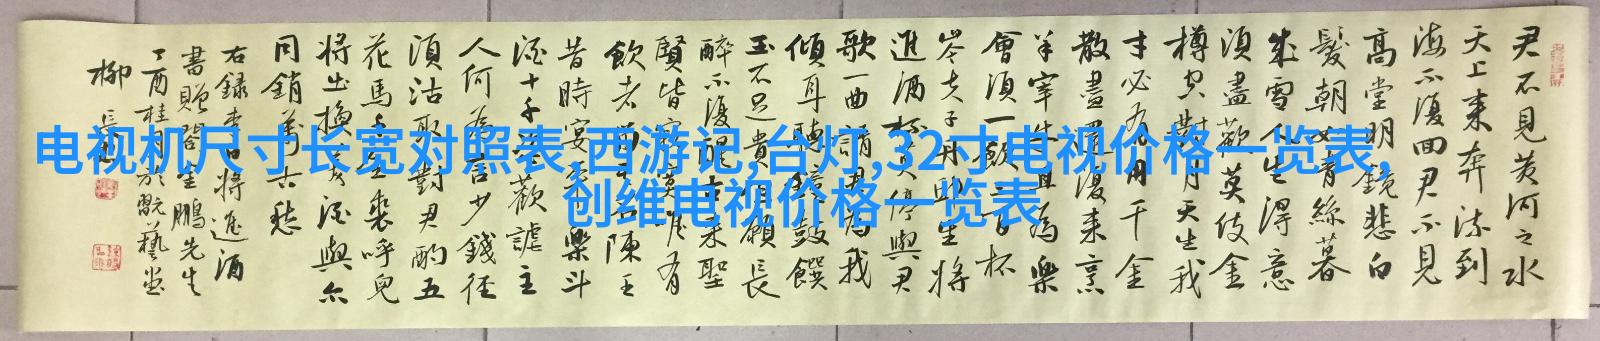 电视机尺寸长宽对照表,西游记,台灯,32寸电视价格一览表,
创维电视价格一览表
君不見黃河之水
天上來奔流到
海不復回君不見
高堂明鏡悲白
髮朝如青絲暮
成雪人生得意
須盡歡莫使金
樽空對月天生我
才必有用千金
散盡還復來烹
羊宰牛且為樂
會須一飲三百杯
岑夫子丹丘生將
進酒杯莫停與君
歌一曲請君為我
傾耳聽鐘鼓饌
玉不足貴但願長
醉不復醒古來聖
賢皆寂寞唯有
飲者留其名陳王
昔時宴平樂斗
酒十千恣歡謔主
人何為言少錢徑
須沽取對君酌五
花馬千金裘呼兒
將出換美酒與尔
同銷萬古愁
右録李白將進酒
書贈生鵬先生
丁酉桂月於翫藝堂
柳